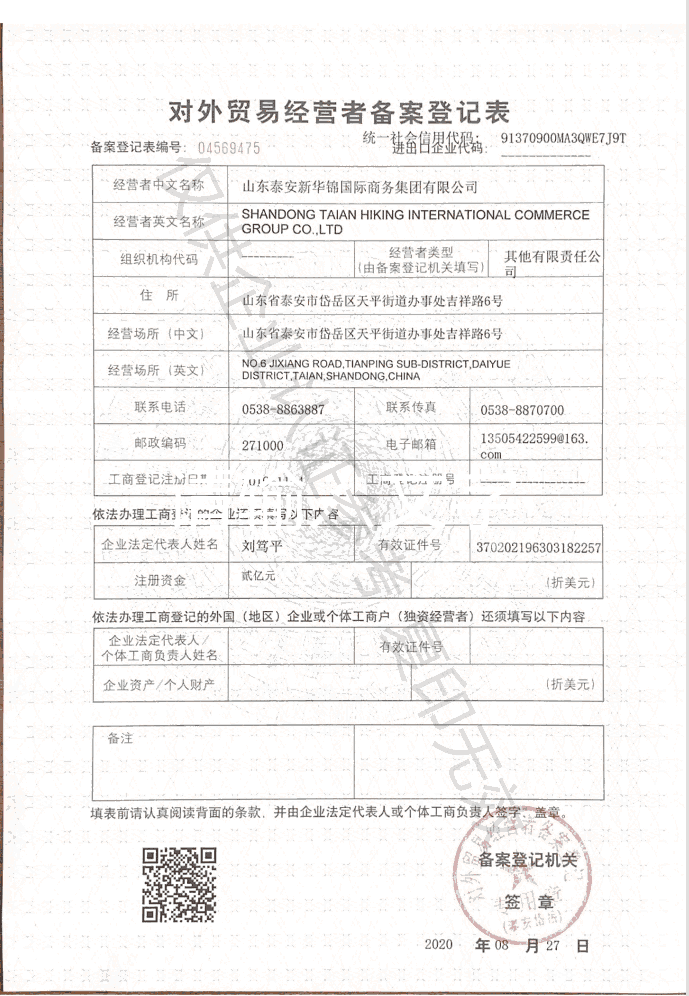 对外贸易经营者备案登记表
统一社会信用代码： 91370900MA3QWE7J9T
备案登记表编号： 04569475 进出口企业代码： -------------
经营者中文名称 山东泰安新华锦国际商务集团有限公司
经营者英文名称 SHANDONG TAIAN HIKING INTERNATIONAL COMMERCE
GROUP CO.,LTD
组织机构代码 --------- 经营者类型
(由备案登记机关填写) 其他有限责任公
司
住 所 山东省泰安市岱岳区天平街道办事处吉祥路6号
经营场所（中文） 山东省泰安市岱岳区天平街道办事处吉祥路6号
经营场所（英文） NO.6 JIXIANG ROAD,TIANPING SUB-DISTRICT,DAIYUE
DISTRICT,TAIAN,SHANDONG,CHINA
联系电话 0538-8863887 联系传真 0538-8870700
邮政编码 271000 电子邮箱 13505422599@163.
com
工商登记注册日期 工商登记注册号 ---------------
依法办理工商登记的企业还须填写以下内容
企业法定代表人姓名 刘笃平 有效证件号 370202196303182257
注册资金 贰亿元 (折美元)
依法办理工商登记的外国（地区）企业或个体工商户（独资经营者）还须填写以下内容
企业法定代表人/
个体工商负责人姓名 有效证件号
企业资产/个人财产 (折美元)
备注
填表前请认真阅读背面的条款，并由企业法定代表人或个体工商负责人签字、盖章。
备案登记机关
签 章
2020 年 08 月 27 日
对外贸易经营者备案登记
专用章
(泰安岱岳)
仅供企业认证参考 复印无效